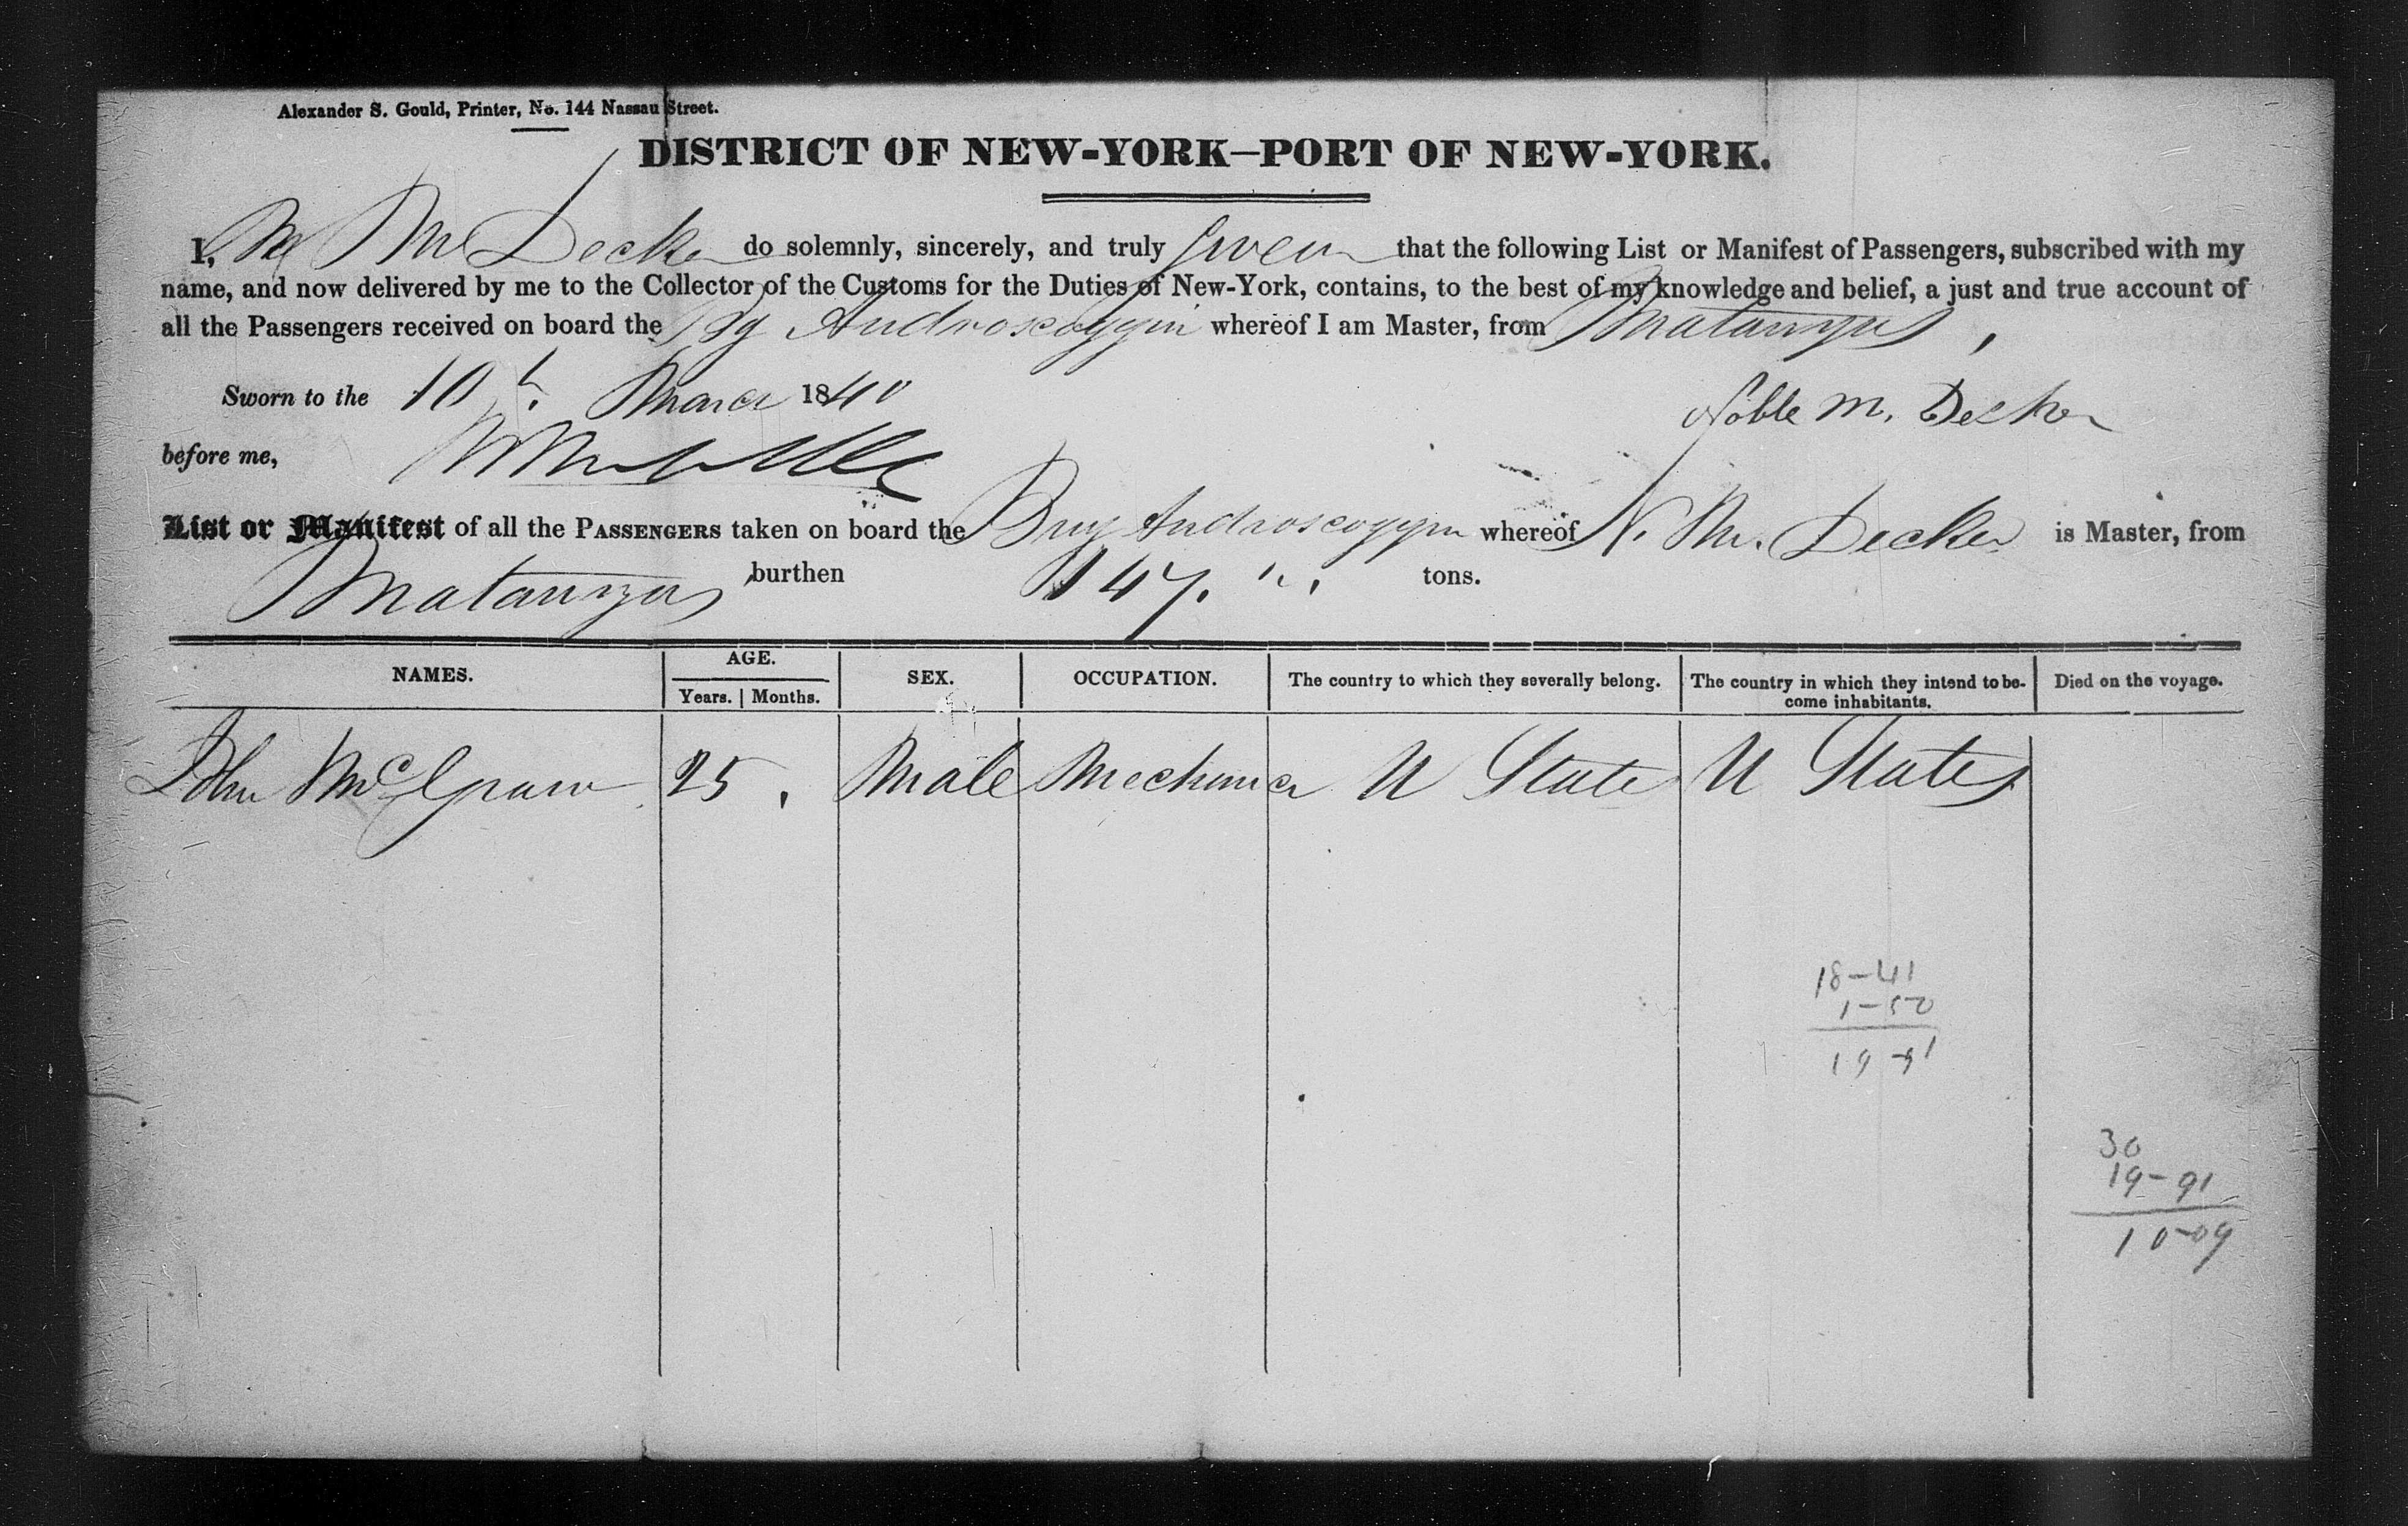 Alexander S. Gould, Printer, No. 144 Nassau Street.
DISTRICT OF NEW-YORK—PORT OF NEW-YORK.
I, N M Decker do solemnly, sincerely, and truly swear that the following List or Manifest of Passengers, subscribed with my
name, and now delivered by me to the Collector of the Customs for the Duties of New-York, contains, to the best of my knowledge and belief, a just and true account of
all the Passengers received on board the Bg Androscoggin whereof I am Master, from Matanzas,
Sworn to the 10th. March 1840
Noble M. Decker
before me,
List or Manifest of all the PASSENGERS taken on board the Brig Androscoggin whereof N. M. Decker is Master, from
Matanzas burthen 147. tons.
NAMES. AGE. SEX. OCCUPATION. The country to which they severally belong. The country in which they intend to be-come inhabitants. Died on the voyage.
Years. Months.
John McGraw 25. Male Mechanic U State U States
18-41
1-50
19-91
30
19-91
10-09